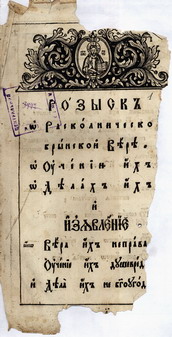 РО́ЗЫСКЪ
ѡ҆ Раскольническо
бры́нской Вѣ́рѣ
ѡ҆ Оу҆че́нїи и҆́хъ
ѡ҆ Дѣ́лахъ и҆́хъ
и҆
И҆З̾ЯВЛЕ́НЇЕ
Вѣ́ра и҆́хъ непра́ва
Оу҆че́нїе и҆́хъ душевре́д
и҆ Дѣла̀ и҆́хъ не бг҃оуго́д